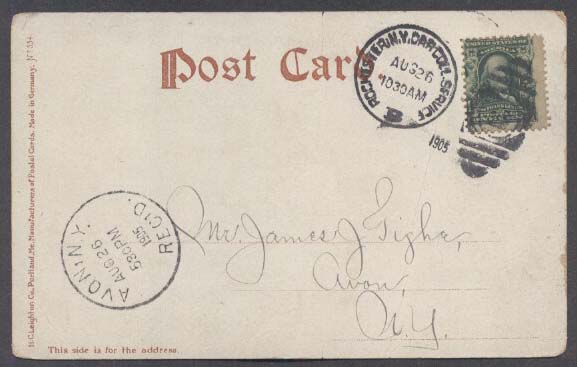 Post Card.
ROCHESTER, N.Y. CAR COLL. SERVICE
AUG 26
1030AM
1905
UNITED STATES OF AMERICA
AVON, N.Y.
AUG 26
530PM
1905
REC'D.
Mr. James J. Tighe,
Avon,
N.Y.
H.C. Leighton Co., Portland, Me. Manufacturers of Postal Cards. Made in Germany.
This side is for the address.